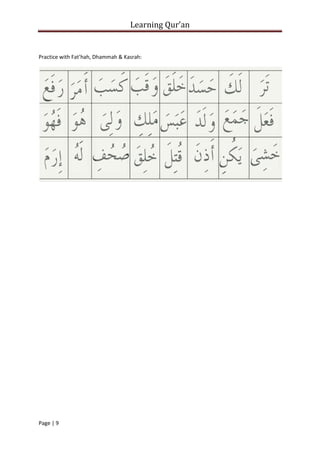 Learning Qur'an
Practice with Fat'hah, Dhammah & Kasrah:
تَرَ لَكَ حَسَدَ خَلَقَ وَقَبَ كَسَبَ أَمَرَ رَفَعَ
فَعَلَ جَمَعَ وَلَدَ عَبَسَ مَلِكِ وَلِىَ هُوَ فَهُوَ
خَشِىَ يَكُنِ أَذِنَ قُتِلَ خُلِقَ صُحُفِ لَهُ إِرَمَ
Page | 9